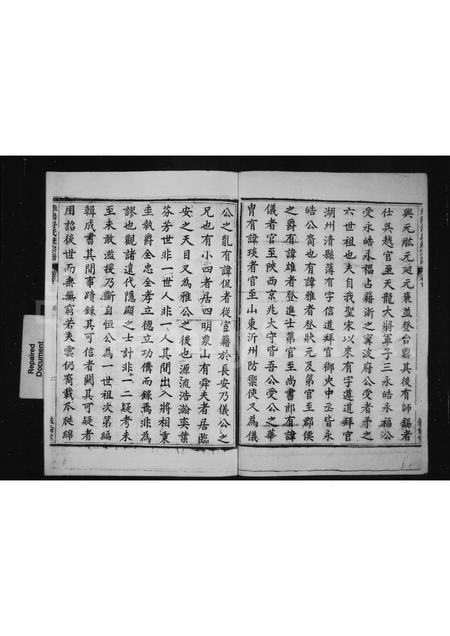 興元肱元延元褒蓋登台鼎其後有師錫者
仕吳越官至天龍大將軍子三永皓永福公
受永皓永福占籍浙之寧波府公受者予之
六世祖也夫自我聖宋以來有字遵道拜官
湖州清縣簿有字信道拜官御史中丞皆永
皓公裔也有諱雅者登狀元及第官至郡侯
之爵有諱雄者登進士第官至尚書郎有諱
儀者官至西京兆大守皆吾公受公之華
胄有諱琰者官至山東沂州防禦使又為儀
公之胤有諱侃者從官籍於長安乃儀公之
兄也有小四者居四明農山有舜夫者居臨
安之天目又為雅公之後也源流浩瀚奕葉
芬芳世非一世人非一人其間出入將相秉
圭執爵全忠全孝立德立功僑而錄焉非為
謬也觀諸遺代隱顯之士計非一二疑考未
至未敢濫援乃斷自恒公為一世祖次第編
輯成書其間事蹟錄其可信者闕其可疑者
用詔後世而垂無窮若夫雲仍裔裁瓜瓞綿
Repaired
Document